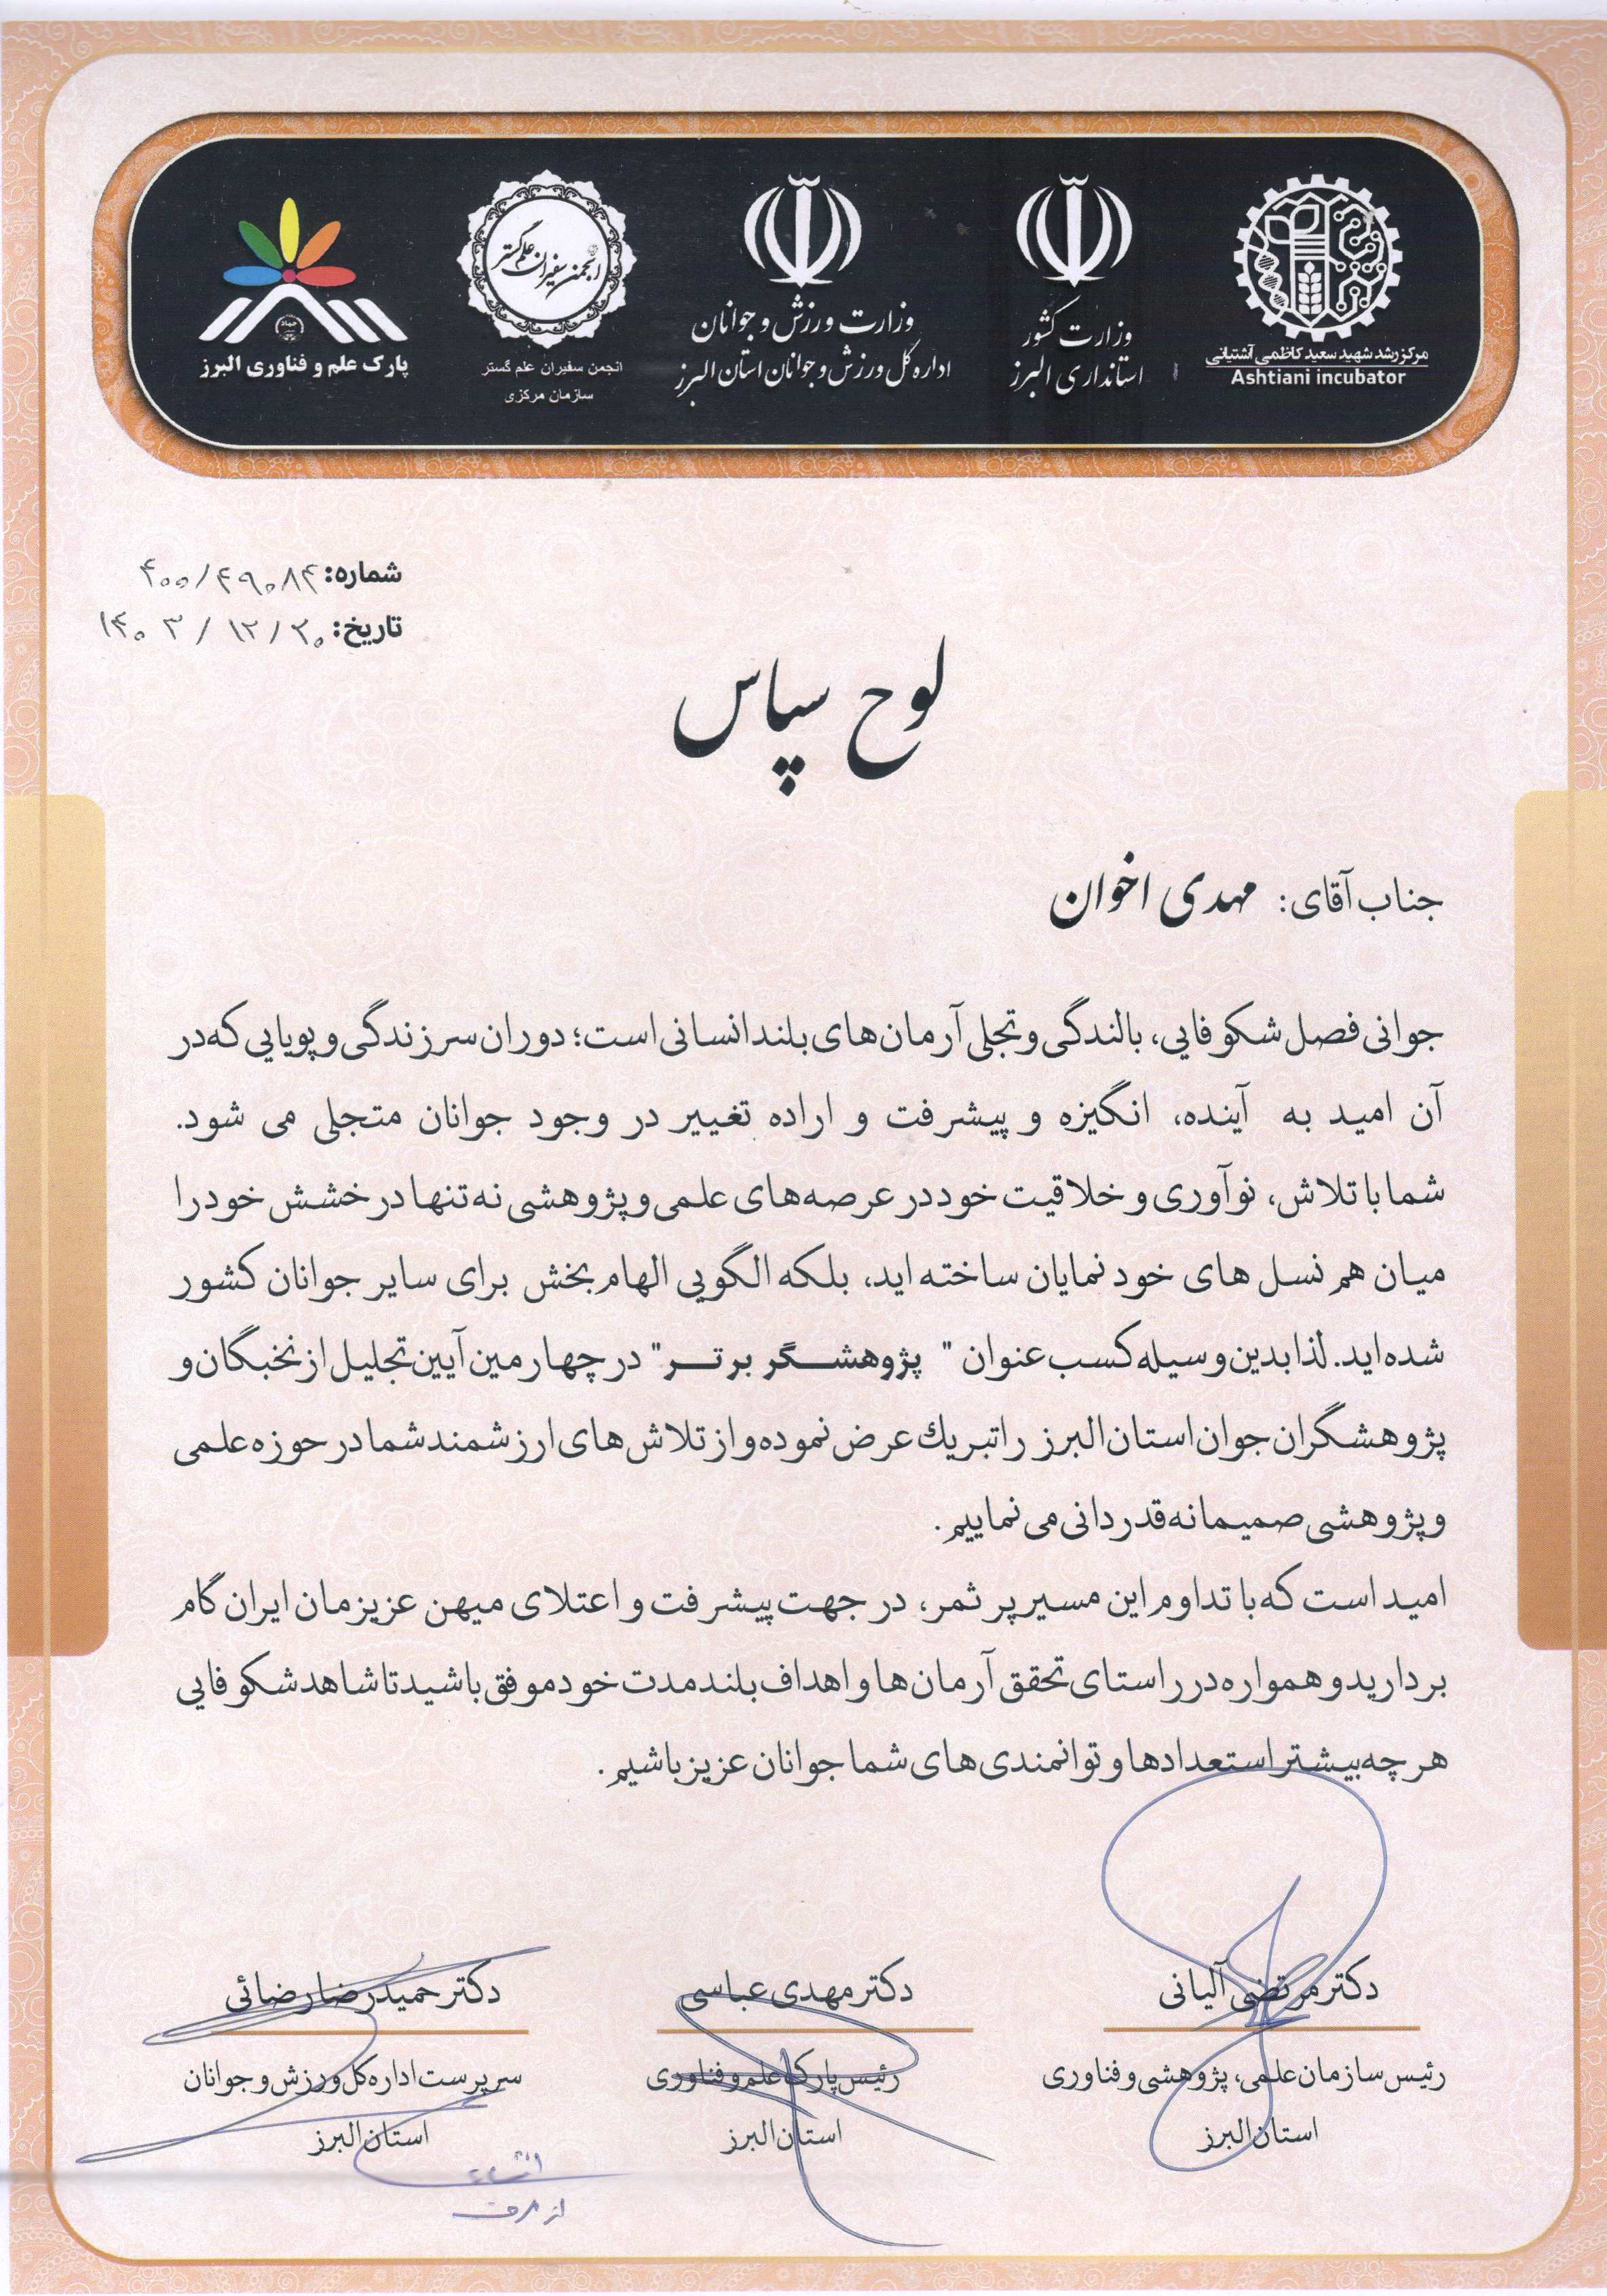 مرکز رشد شهید سعید کاظمی آشتیانی
Ashtiani incubator
وزارت کشور
استانداری البرز
وزارت ورزش و جوانان
اداره کل ورزش و جوانان استان البرز
انجمن سفیران علم گستر
انجمن سفیران علم گستر
سازمان مرکزی
پارک علم و فناوری البرز
شماره: ۴۰۰/۴۹۰۸۴
تاریخ: ۱۴۰۳/۱۲/۲۰
لوح سپاس
جناب آقای: مهدی اخوان
جوانی فصل شکوفایی، بالندگی و تجلی آرمان‌های بلند انسانی است؛ دوران سرزندگی و پویایی که در
آن امید به آینده، انگیزه و پیشرفت و اراده تغییر در وجود جوانان متجلی می شود.
شما با تلاش، نوآوری و خلاقیت خود در عرصه‌های علمی و پژوهشی نه تنها درخشش خود را
میان هم نسل های خود نمایان ساخته اید، بلکه الگویی الهام بخش برای سایر جوانان کشور
شده‌اید. لذا بدین وسیله کسب عنوان " پژوهشگر برتر" در چهارمین آیین تجلیل از نخبگان و
پژوهشگران جوان استان البرز را تبریک عرض نموده و از تلاش‌های ارزشمند شما در حوزه علمی
و پژوهشی صمیمانه قدردانی می نماییم.
امید است که با تداوم این مسیر پر ثمر، در جهت پیشرفت و اعتلای میهن عزیزمان ایران گام
بردارید و همواره در راستای تحقق آرمان‌ها و اهداف بلند مدت خود موفق باشید تا شاهد شکوفایی
هر چه بیشتر استعدادها و توانمندی های شما جوانان عزیز باشیم.
دکتر مرتضی آلیانی
رئیس سازمان علمی، پژوهشی و فناوری
استان البرز
دکتر مهدی عباسی
رئیس پارک علم و فناوری
استان البرز
دکتر حمیدرضا رضائی
سرپرست اداره کل ورزش و جوانان
استان البرز
از طرف